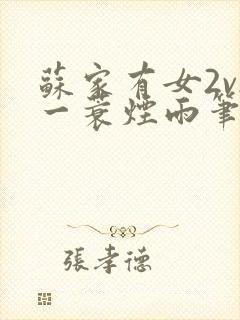 蘇家有女2v
一蓑煙雨筆
張孝德